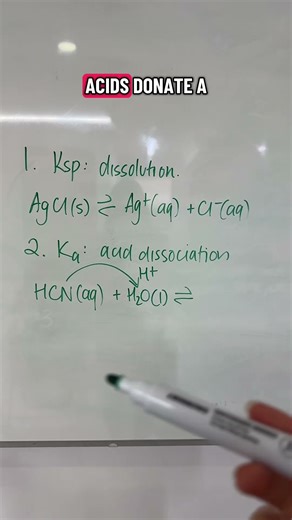 ACIDS DONATE A
1. Ksp: dissolution.
AgCl(s) ⇌ Ag⁺(aq) + Cl⁻(aq)
2. Ka: acid dissociation
H⁺
HCN(aq) + H₂O(l) ⇌